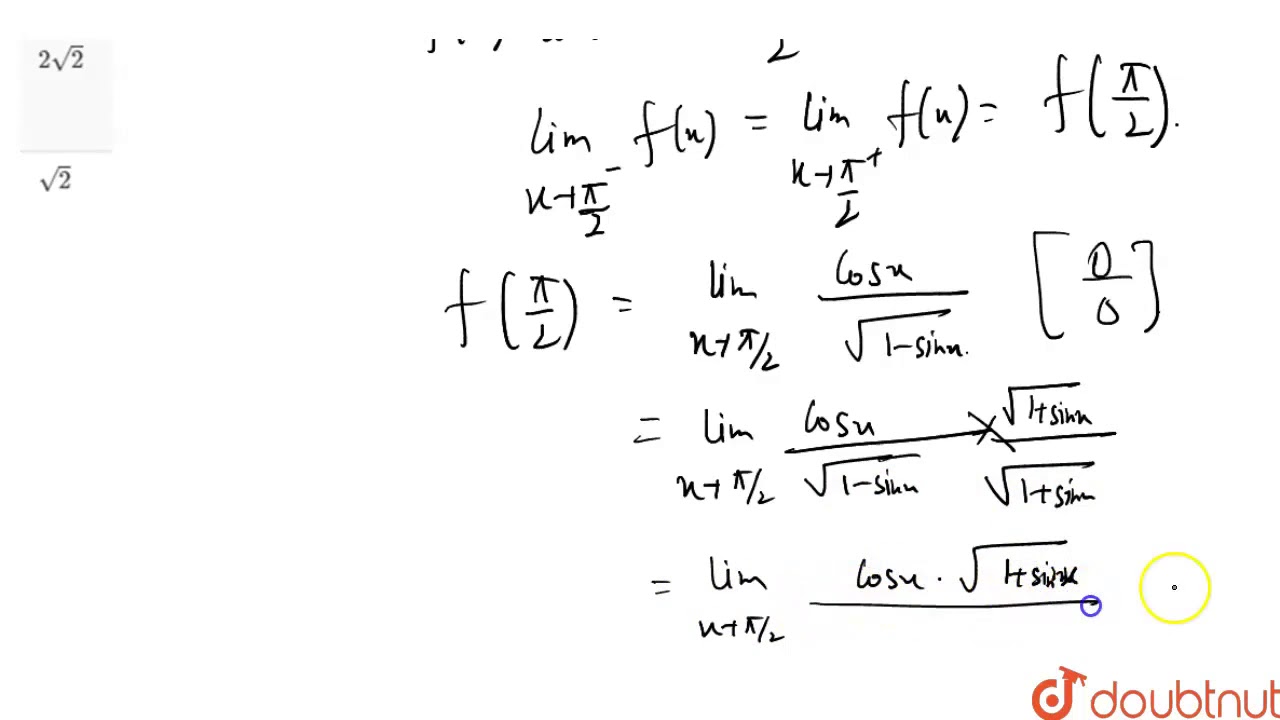 2√2
√2
2
lim x→π/2⁻ f(x) = lim x→π/2⁺ f(x) = f(π/2).
f(π/2) = lim x→π/2 cosx / √1-sinx. [0/0]
= lim x→π/2 cosx / √1-sinx × √1+sinx / √1+sinx
= lim x→π/2 cosx · √1+sinx
doubtnut